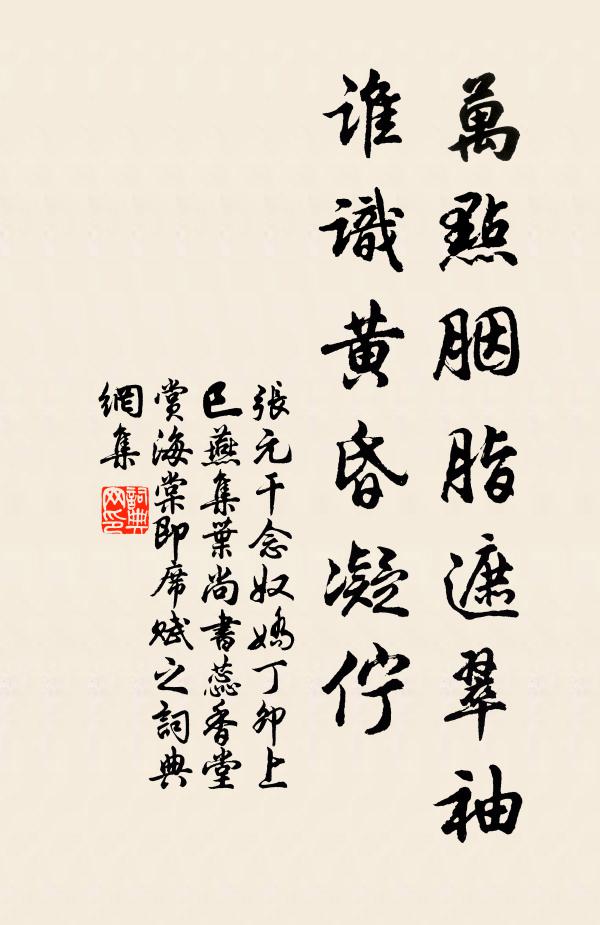 萬點胭脂遮翠袖
誰識黄昏凝佇
張元干念奴嬌丁卯上
巳燕集葉尚書蕊香堂
賞海棠即席賦之詞典
網集
詞典
网印